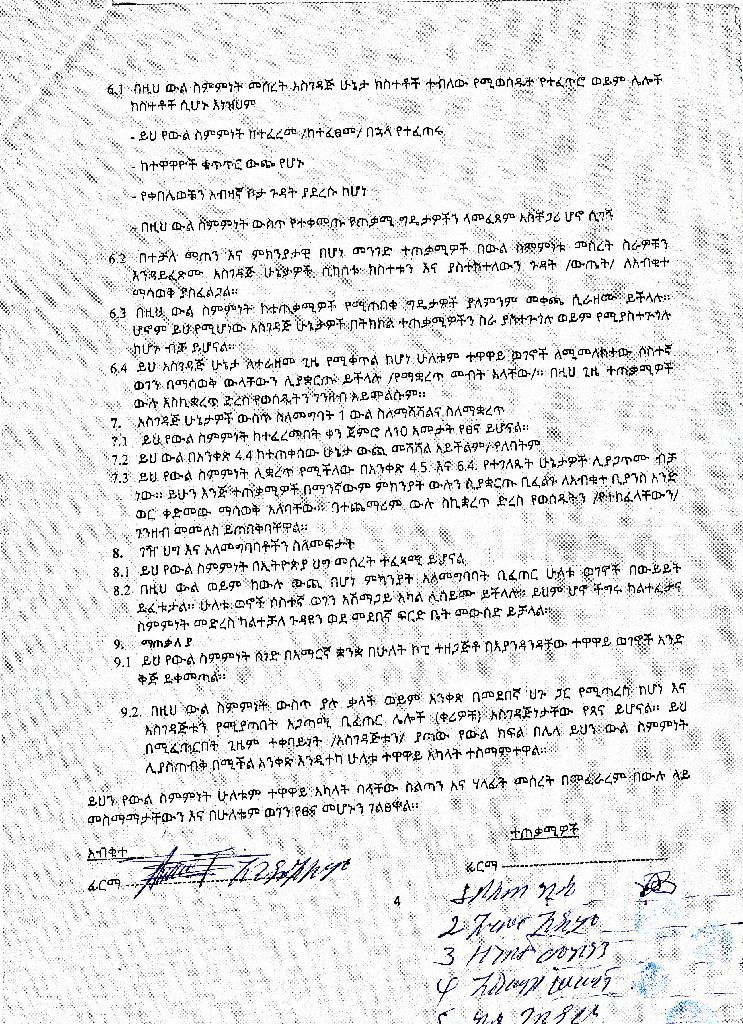 6.1 በዚህ ውል ስምምነት መሰረት አስገዳጅ ሁኔታ ክስተቶች ተብለው የሚወሰዱት የተፈጥሮ ወይም ሌሎች
ክስተቶች ሲሆኑ እነዚህም
- ይህ የውል ስምምነት ከተፈረመ /ከተፈፀመ/ በኋላ የተፈጠሩ
- ከተዋዋዮች ቁጥጥር ውጭ የሆኑ
- የቀበሌውቹን አብዛኛ ቦታ ጉዳት ያደረሱ ከሆነ
- በዚህ ውል ስምምነት ውስጥ የተቀመጡ የጠቃሚ ግዴታዎችን ላመፈጸም አስቸጋሪ ሆኖ ሲገኝ
6.2 በተቻለ መጠን እና ምክንያታዊ በሆነ መንገድ ተጠቃሚዎች በውል ስምምነቱ መሰረት ስራዎቹን
እንዳይፈጽሙ አስገዳጅ ሁኔታዎች ሲከሰቱ ክስተቱን እና ያስከተለውን ጉዳት /ውጤት/ ለአብቁተ
ማሳወቅ ያስፈልጋል።
6.3 በዚህ ውል ስምምነት ከተጠቃሚዎች የሚጠበቁ ግዴታዎች ያለምንም መቀጫ ሊራዘሙ ይችላሉ።
ሆኖም ይህ የሚሆነው አስገዳጅ ሁኔታዎች በትክክል ተጠቃሚዎችን ስራ ያስተጓጎሉ ወይም የሚያስተጓጎሉ
ከሆኑ ብቻ ይሆናል።
6.4 ይህ አስገዳጅ ሁኔታ ለተራዘመ ጊዜ የሚቀጥል ከሆነ ሁለቱም ተዋዋይ ወገኖች ለሚመለከተው ሶስተኛ
ወገን በማሳወቅ ውላቸውን ሊያቋርጡ ይችላሉ /የማቋረጥ መብት አላቸው/። በዚህ ጊዜ ተጠቃሚዎች
ውሉ እስኪቋረጥ ድረስ የወሰዱትን ገንዘብ አይመልሱም።
7. አስገዳጅ ሁኔታዎች ውስጥ ስለመግባት 1 ውል ስለማሻሻልና ስለማቋረጥ
7.1 ይህ የውል ስምምነት ከተፈረመበት ቀን ጀምሮ ለ10 አመታት የፀና ይሆናል።
7.2 ይህ ውል በአንቀጽ 4.4 ከተጠቀሰው ሁኔታ ውጪ መሻሻል አይችልም/የለበትም
7.3 ይህ የውል ስምምነት ሊቋረጥ የሚችለው በአንቀጽ 4.5 እና 6.4 የተገለጹት ሁኔታዎች ሊያጋጥሙ ብቻ
ነው። ይሁን እንጅ ተጠቃሚዎች በማንኛውም ምክንያት ውሉን ሲያቋርጡ ቢፈልጉ ለአብቁተ ቢያንስ አንድ
ወር ቀድመው ማሳወቅ አለባቸው። በተጨማሪም ውሉ ስኪቋረጥ ድረስ የወሰዱትን /የተከፈላቸውን/
ገንዘብ መመለስ ይጠበቅባቸዋል።
8. ገዥ ህግ እና አለመግባባቶችን ስለመፍታት
8.1 ይህ የውል ስምምነት በኢትዮጵያ ህግ መሰረት ተፈጻሚ ይሆናል
8.2 በዚህ ውል ወይም ከውሉ ውጪ በሆነ ምክንያት አለመግባባት ቢፈጠር ሁለቱ ወገኖች በውይይት
ይፈቱታል። ሁለቱ ወኖች ሶስተኛ ወገን አሸማጋይ አካል ሊሰይሙ ይችላሉ። ይህም ሆኖ ችግሩ ካልተፈታና
ስምምነት መድረስ ካልተቻለ ጉዳዩን ወደ መደበኛ ፍርድ ቤት መውሰድ ይቻላል።
9. ማጠቃለያ
9.1 ይህ የውል ስምምነት ሰነድ በአማርኛ ቋንቋ በሁለት ኮፒ ተዘጋጅቶ በእያንዳንዳቸው ተዋዋይ ወገኖች አንድ
ቅጅ ይቀመጣል።
9.2. በዚህ ውል ስምምነት ውስጥ ያሉ ቃላት ወይም አንቀጽ በመደበኛ ህጉ ጋር የሚጣረስ ከሆነ እና
አስገዳጅቱን የሚያጣበት አጋጣሚ ቢፈጠር ሌሎች (ቀሪዎቹ) አስገዳጅነታቸው የጸና ይሆናል። ይህ
በሚፈጠርበት ጊዜም ተቀባይነት /አስገዳጅቱን/ ያጣው የውል ክፍል በሌላ ይህን ውል ስምምነት
ሊያስጠብቅ በሚችል አንቀጽ እንዲተካ ሁለቱ ተዋዋይ አካላት ተስማምተዋል።
ይህን የውል ስምምነት ሁለቱም ተዋዋይ አካላት ባላቸው ስልጣን እና ሃላፊት መሰረት በመፈራረም በውሉ ላይ
መስማማታቸውን እና በሁለቱም ወገን የፀና መሆኑን ገልፀዋል።
ተጠቃሚዎች
አብቁተ
ፊርማ
ፊርማ
4
2
3
4
5